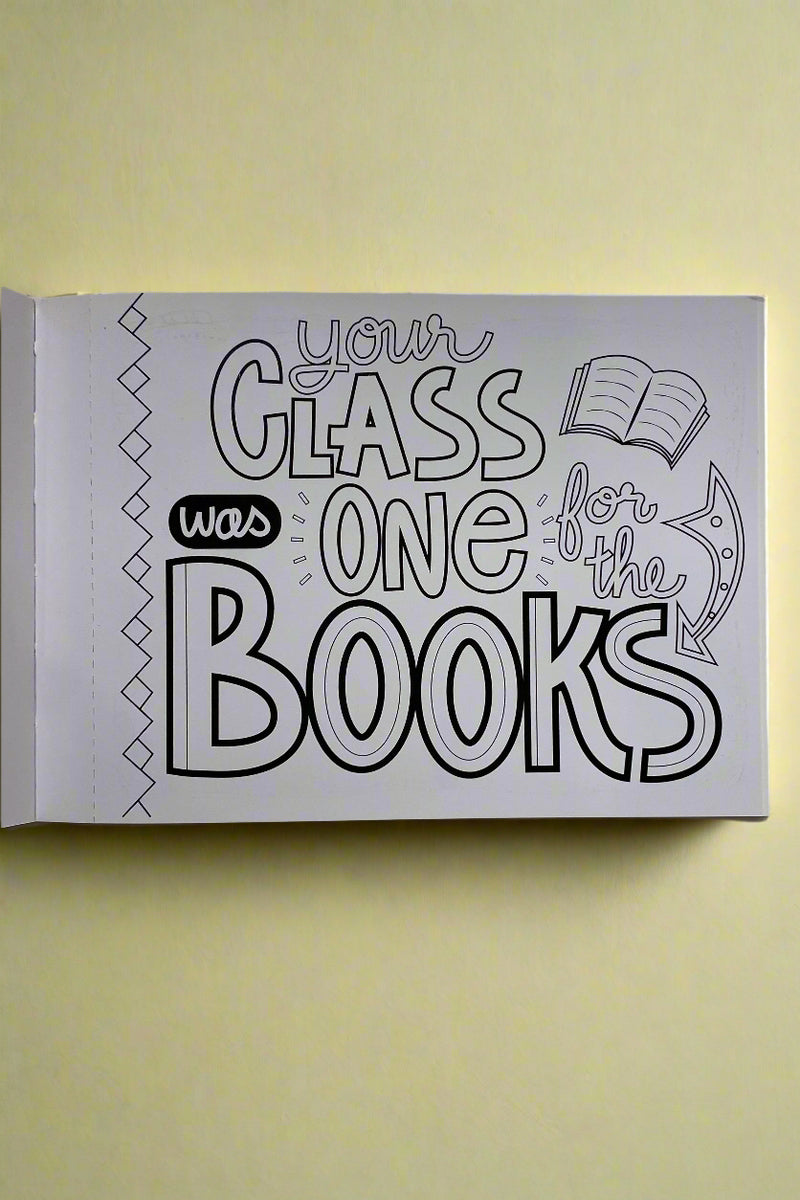 your
CLASS
was ONe for
the
BOOKS